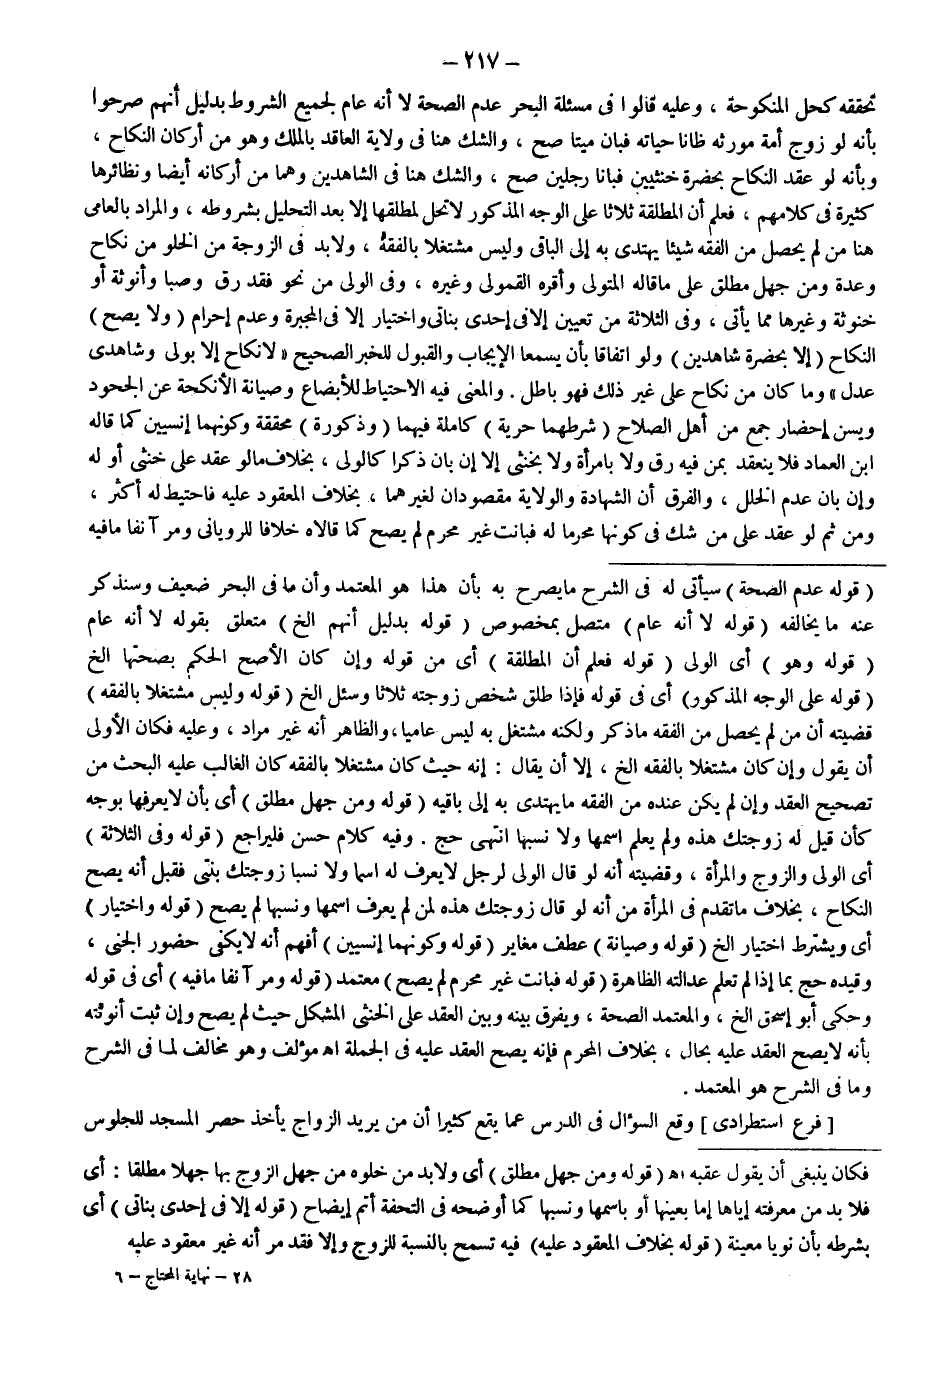 – ٢١٧ –
تحققه كحل المنكوحة ، وعليه قالوا فى مسئلة البحر عدم الصحة لا أنه عام لجميع الشروط بدليل أنهم صرحوا
بأنه لو زوج أمة مورثه ظانا حياته فبان ميتا صح ، والشك هنا فى ولاية العاقد بالملك وهو من أركان النكاح ،
وبأنه لو عقد النكاح بحضرة خنثيين فبانا رجلين صح ، والشك هنا فى الشاهدين وهما من أركانه أيضا ونظائرها
كثيرة فى كلامهم ، فعلم أن المطلقة ثلاثا على الوجه المذكور لاتحل لمطلقها إلا بعد التحليل بشروطه ، والمراد بالعامى
هنا من لم يحصل من الفقه شيئا يهتدى به إلى الباقى وليس مشتغلا بالفقه ، ولابد فى الزوجة من الخلو من نكاح
وعدة ومن جهل مطلق على ماقاله المتولى وأقره القمولى وغيره ، وفى الولى من نحو فقد رق وصبا وأنوثة أو
خنوثة وغيرها مما يأتى ، وفى الثلاثة من تعيين إلافى إحدى بناتى واختيار إلا فى المجبرة وعدم إحرام ( ولا يصح )
النكاح ( إلا بحضرة شاهدين ) ولو اتفاقا بأن يسمعا الإيجاب والقبول للخبر الصحيح « لانكاح إلا بولى وشاهدى
عدل » وما كان من نكاح على غير ذلك فهو باطل . والمعنى فيه الاحتياط للأبضاع وصيانة الأنكحة عن الجحود
ويسن إحضار جمع من أهل الصلاح ( شرطهما حرية ) كاملة فيهما ( وذكورة ) محققة وكونهما إنسيين كما قاله
ابن العماد فلا ينعقد بمن فيه رق ولا بامرأة ولا بخنثى إلا إن بان ذكرا كالولى ، بخلاف مالو عقد على خنثى أو له
وإن بان عدم الخلل ، والفرق أن الشهادة والولاية مقصودان لغيرهما ، بخلاف المعقود عليه فاحتيط له أكثر ،
ومن ثم لو عقد على من شك فى كونها محرما له فبانت غير محرم لم يصح كما قالاه خلافا للرويانى ومر آنفا مافيه
( قوله عدم الصحة ) سيأتى له فى الشرح مايصرح به بأن هذا هو المعتمد وأن ما فى البحر ضعيف وسنذكر
عنه ما يخالفه ( قوله لا أنه عام ) متصل بمخصوص ( قوله بدليل أنهم الخ ) متعلق بقوله لا أنه عام
( قوله وهو ) أى الولى ( قوله فعلم أن المطلقة ) أى من قوله وإن كان الأصح الحكم بصحتها الخ
( قوله على الوجه المذكور) أى فى قوله فإذا طلق شخص زوجته ثلاثا وسئل الخ ( قوله وليس مشتغلا بالفقه )
قضيته أن من لم يحصل من الفقه ماذكر ولكنه مشتغل به ليس عاميا، والظاهر أنه غير مراد ، وعليه فكان الأولى
أن يقول وإن كان مشتغلا بالفقه الخ ، إلا أن يقال : إنه حيث كان مشتغلا بالفقه كان الغالب عليه البحث من
تصحيح العقد وإن لم يكن عنده من الفقه مايهتدى به إلى باقيه ( قوله ومن جهل مطلق ) أى بأن لايعرفها بوجه
كأن قيل له زوجتك هذه ولم يعلم اسمها ولا نسبها انتهى حج . وفيه كلام حسن فليراجع ( قوله وفى الثلاثة )
أى الولى والزوج والمرأة ، وقضيته أنه لو قال الولى لرجل لايعرف له اسما ولا نسبا زوجتك بنتى فقبل أنه يصح
النكاح ، بخلاف ماتقدم فى المرأة من أنه لو قال زوجتك هذه لمن لم يعرف اسمها ونسبها لم يصح ( قوله واختيار )
أى ويشترط اختيار الخ ( قوله وصيانة ) عطف مغاير ( قوله وكونهما إنسيين ) أفهم أنه لايكفى حضور الجنى ،
وقيده حج بما إذا لم تعلم عدالته الظاهرة ( قوله فبانت غير محرم لم يصح ) معتمد ( قوله ومر آنفا مافيه ) أى فى قوله
وحكى أبو إسحق الخ ، والمعتمد الصحة ، ويفرق بينه وبين العقد على الخنثى المشكل حيث لم يصح وإن ثبت أنوثته
بأنه لايصح العقد عليه بحال ، بخلاف المحرم فإنه يصح العقد عليه فى الجملة اه مؤلف وهو مخالف لما فى الشرح
وما فى الشرح هو المعتمد .
[ فرع استطرادى ] وقع السؤال فى الدرس عما يقع كثيرا أن من يريد الزواج يأخذ حصر المسجد للجلوس
فكان ينبغى أن يقول عقبه اه ( قوله ومن جهل مطلق ) أى ولابد من خلوه من جهل الزوج بها جهلا مطلقا : أى
فلا بد من معرفته إياها إما بعينها أو باسمها ونسبها كما أوضحه فى التحفة أتم إيضاح ( قوله إلا فى إحدى بناتى ) أى
بشرطه بأن نويا معينة ( قوله بخلاف المعقود عليه) فيه تسمح بالنسبة للزوج وإلا فقد مر أنه غير معقود عليه
٢٨ – نهاية المحتاج – ٦